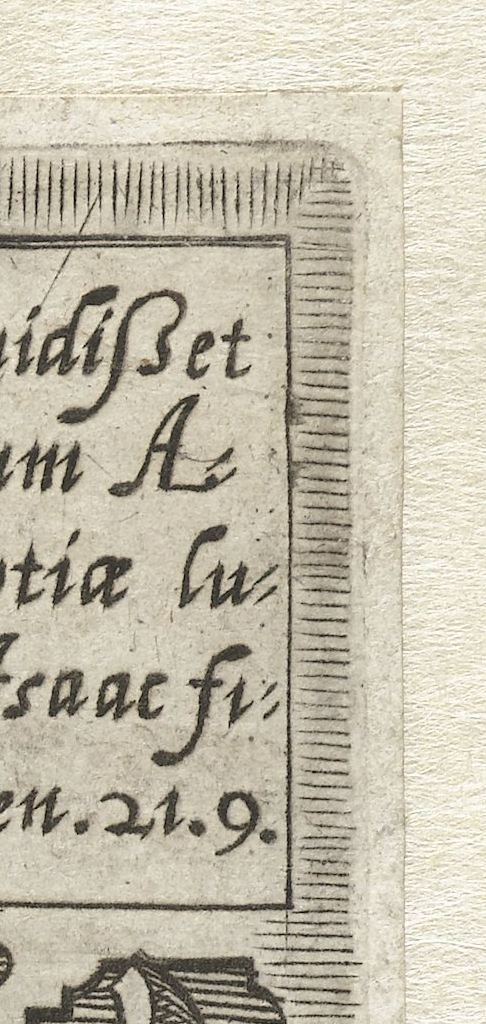 uidißet
um A=
ptiæ lu=
Isaac fi=
en. 21. 9.